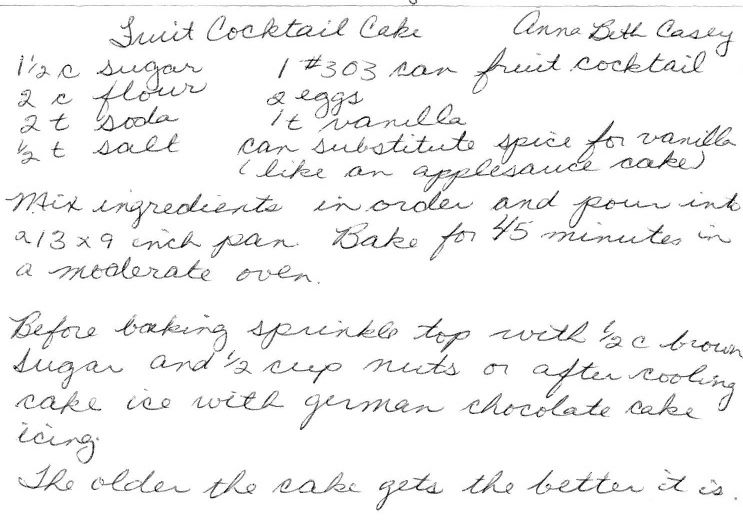 Fruit Cocktail Cake Anna Beth Casey
1 1/2 c sugar 1 #303 can fruit cocktail
2 c flour 2 eggs
2 t soda 1 t vanilla
1/2 t salt can substitute spice for vanilla
(like an applesauce cake)
Mix ingredients in order and pour into
a 13 x 9 inch pan. Bake for 45 minutes in
a moderate oven.
Before baking sprinkle top with 1/2 c brown
sugar and 1/2 cup nuts or after cooling
cake ice with german chocolate cake
icing.
The older the cake gets the better it is.